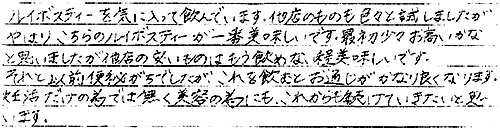 ルイボスティーを気に入って飲んでいます。他店のものも色々と試しましたが
やはりこちらのルイボスティーが一番美味しいです。最初少々お高いかな
と思いましたが他店の安いものはもう飲めない程美味しいです。
それと以前便秘がちでしたが、これを飲むとお通じがかなり良くなります。
妊活だけの為では無く美容の為にも、これからも続けていきたいと思
います。